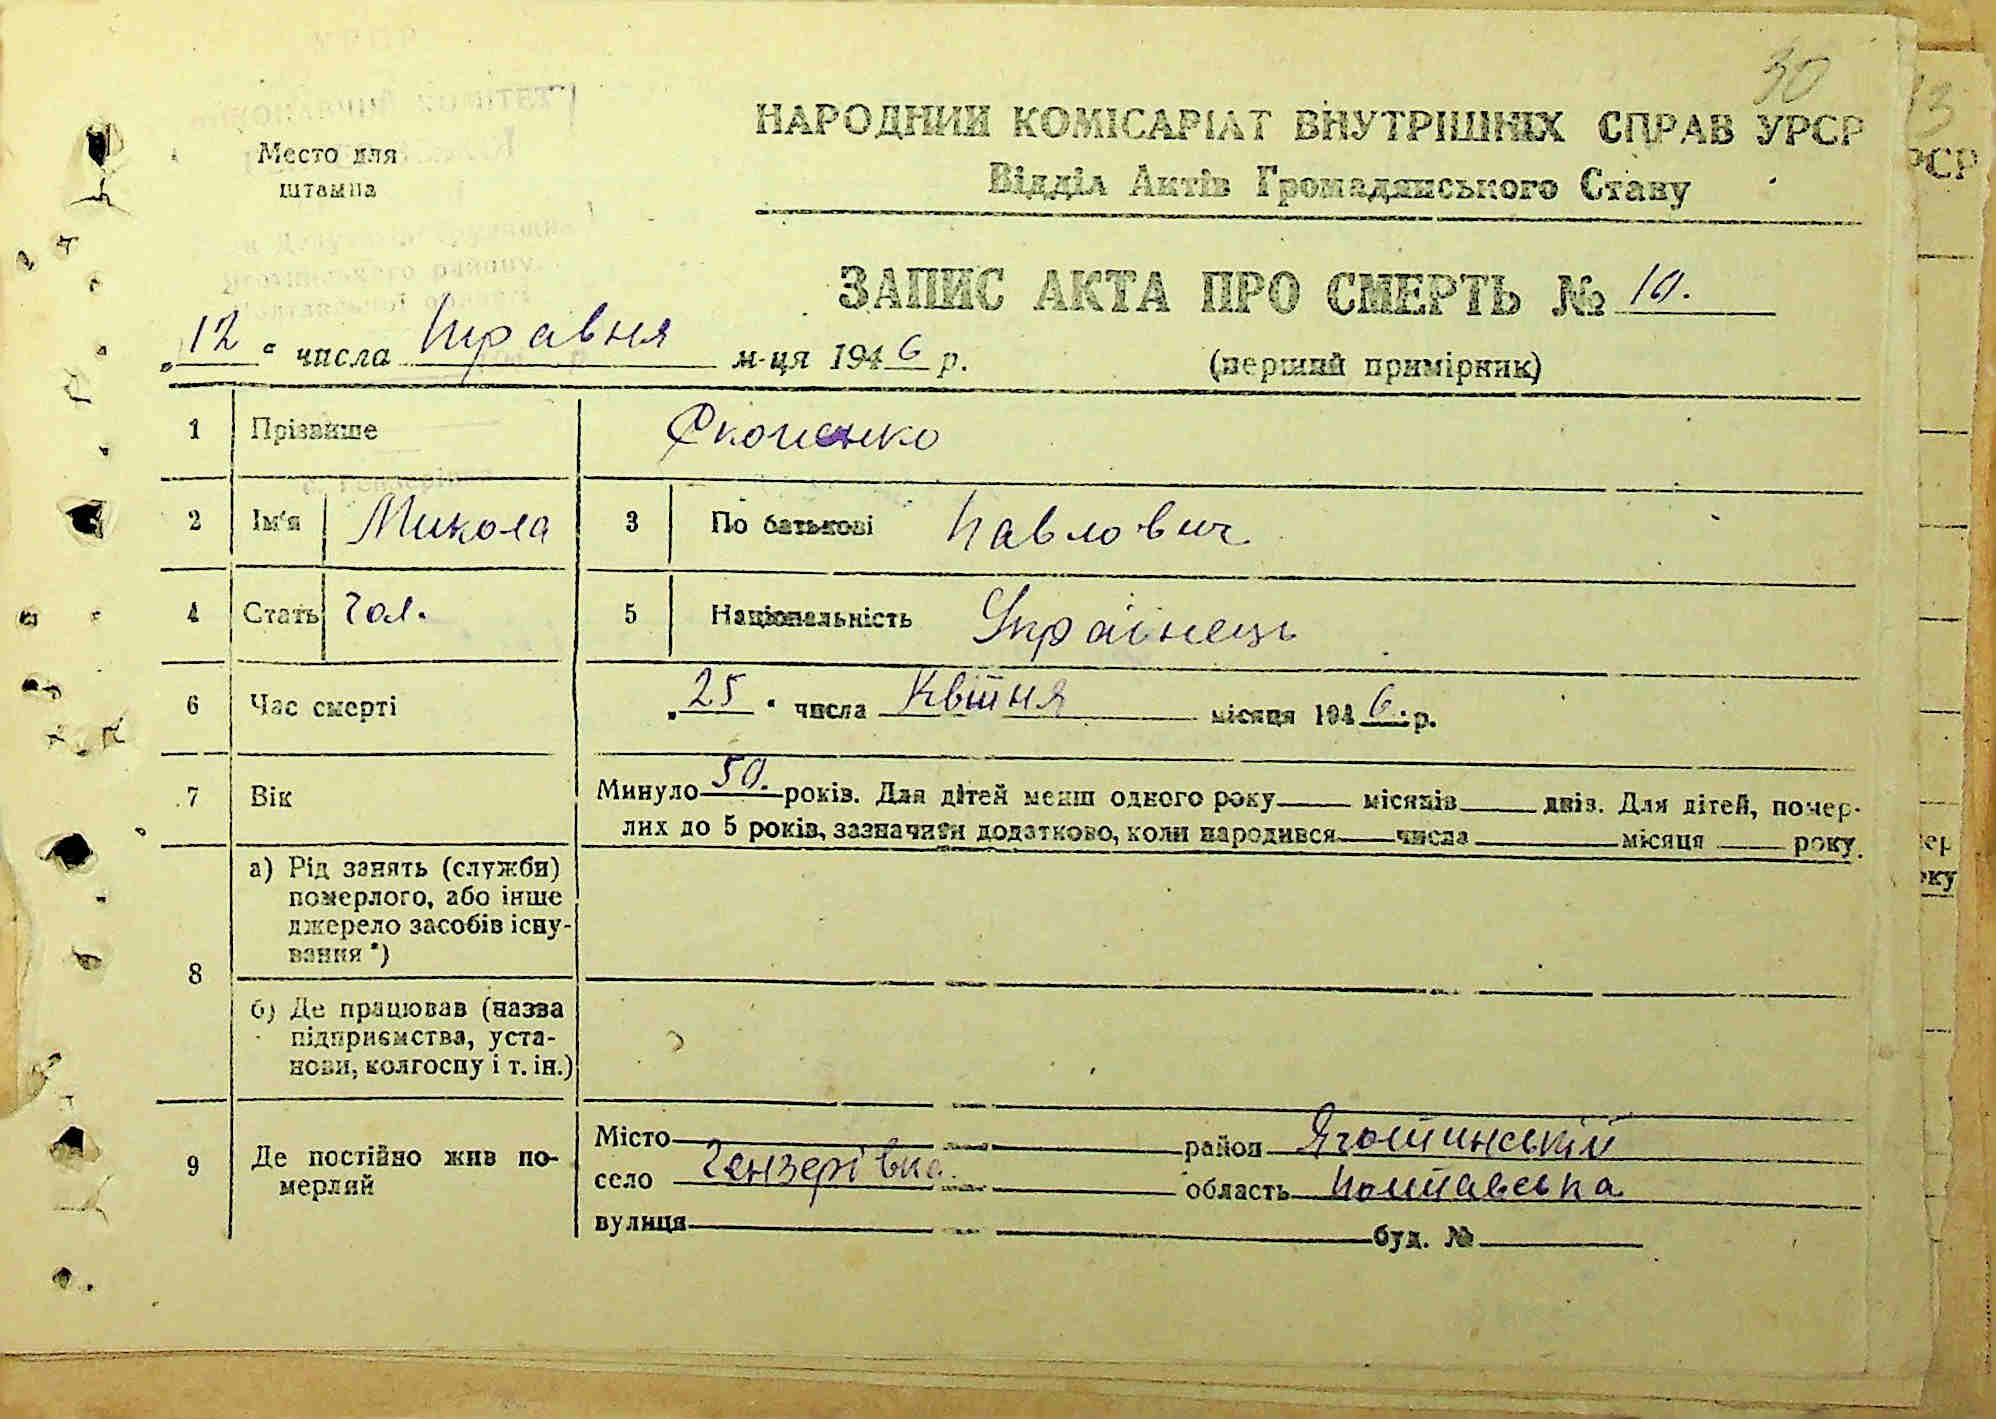 30
Место для
штампа
НАРОДНИЙ КОМІСАРІАТ ВНУТРІШНІХ СПРАВ УРСР
Відділ Актів Громадянського Стану
ЗАПИС АКТА ПРО СМЕРТЬ № 10.
„12“ числа Травня м-ця 1946 р.
(перший примірник)
1 Прізвище
2 Ім'я Микола 3 По батькові Павлович
4 Стать Чол. 5 Національність Українець
6 Час смерті „25“ числа Квітня місяця 1946. р.
7 Вік Минуло 50. років. Для дітей менш одного року місяців днів. Для дітей, помер-
лих до 5 років, зазначити додатково, коли народився числа місяця року.
8 а) Рід занять (служби)
померлого, або інше
джерело засобів існу-
вання *)
б) Де працював (назва
підприємства, уста-
нови, колгоспу і т. ін.)
9 Де постійно жив по-
мерлий
Місто район Яготинський
село Гензерівка. область Полтавська
вулиця буд. №
13
РСР